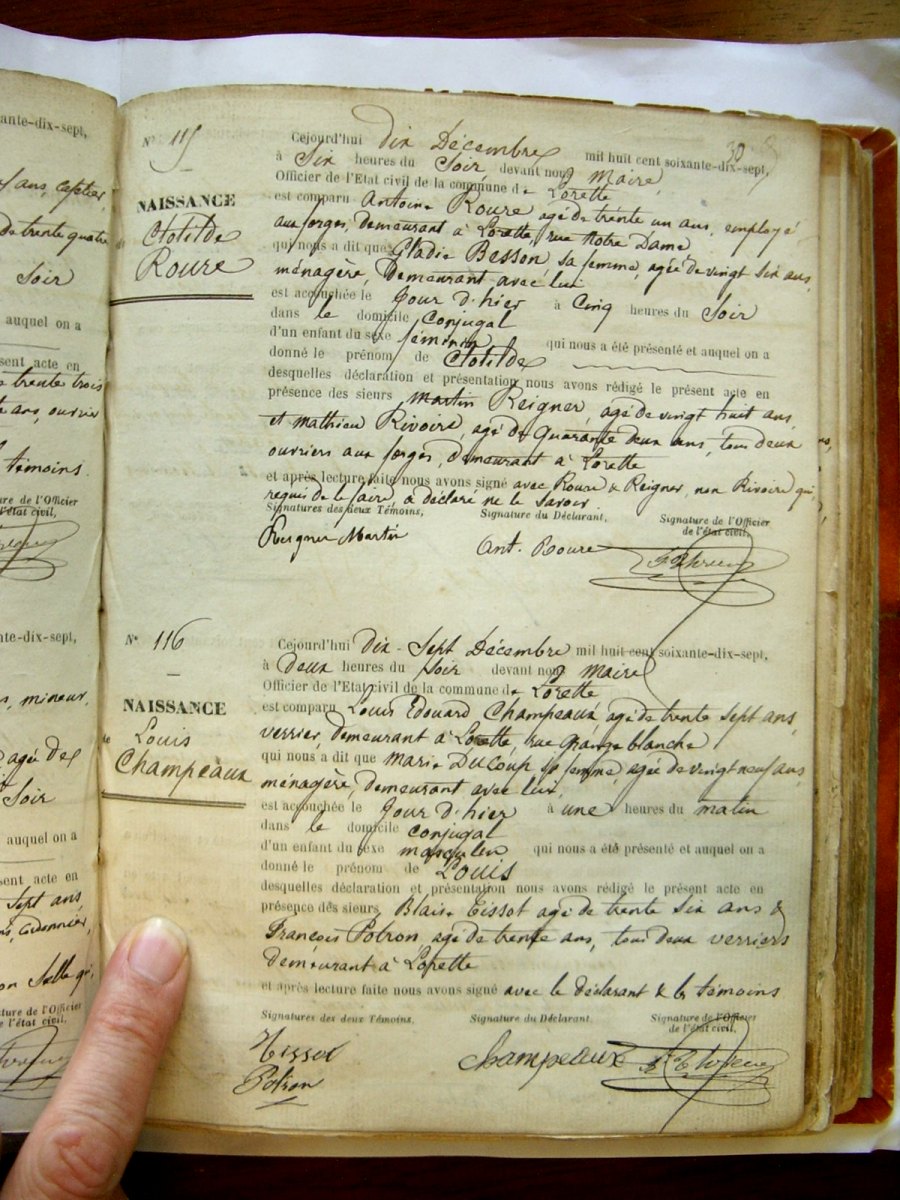 ante-dix-sept,
de trente quatre
Soir
auquel on a
sent acte en
trente trois
ans, ouvrier
témoins.
ure de l'Officier
l'état civil,
ante-dix-sept,
mineur,
agé de
Soir
auquel on a
sent acte en
Sept ans
ture de l'Officier
e l'état civil,
30
N° 115
NAISSANCE
de Clotilde
Roure
Cejourd'hui dix Décembre mil huit cent soixante-dix-sept,
à Six heures du Soir, devant nous Maire,
Officier de l'Etat civil de la commune de Lorette
est comparu Antoine Roure agé de trente un ans, employé
aux forges, demeurant à Lorette, rue Notre Dame
qui nous a dit que Gladie Besson sa femme, agée de vingt six ans,
ménagère, Demeurant avec lui
est accouchée le Jour d'hier à Cinq heures du Soir
dans le domicile conjugal
d'un enfant du sexe féminin qui nous a été présenté et auquel on a
donné le prénom de Clotilde
desquelles déclaration et présentation nous avons rédigé le présent acte en
présence des sieurs Martin Reigner, agé de vingt huit ans,
et Mathieu Rivoire, agé de Quarante deux ans, tous deux
ouvriers aux forges, demeurant à Lorette
et après lecture faite nous avons signé avec Roure & Reigner, non Rivoire qui,
requis de le faire, a déclaré ne le Savoir
Signatures des deux Témoins, Signature du Déclarant, Signature de l'Officier
de l'état civil,
Reigner Martin Ant. Roure
N° 116
NAISSANCE
de Louis
Champeaux
Cejourd'hui Dix-Sept Décembre mil huit cent soixante-dix-sept,
à Deux heures du Soir devant nous Maire
Officier de l'Etat civil de la commune de Lorette
est comparu Louis Edouard Champeaux agé de trente sept ans,
verrier, demeurant à Lorette, rue Grange blanche
qui nous a dit que Marie Ducoup sa femme, agée de vingt neuf ans,
ménagère, demeurant avec lui,
est accouchée le Jour d'hier à une heures du matin
dans le domicile conjugal
d'un enfant du sexe masculin qui nous a été présenté et auquel on a
donné le prénom de Louis
desquelles déclaration et présentation nous avons rédigé le présent acte en
présence des sieurs Blaise Tissot agé de trente six ans &
François Potron, agé de trente ans, tous deux verriers
demeurant à Lorette
et après lecture faite nous avons signé avec le déclarant & les témoins
Signatures des deux Témoins, Signature du Déclarant. Signature de l'Officier
de l'état civil,
Tissot Champeaux
Potron